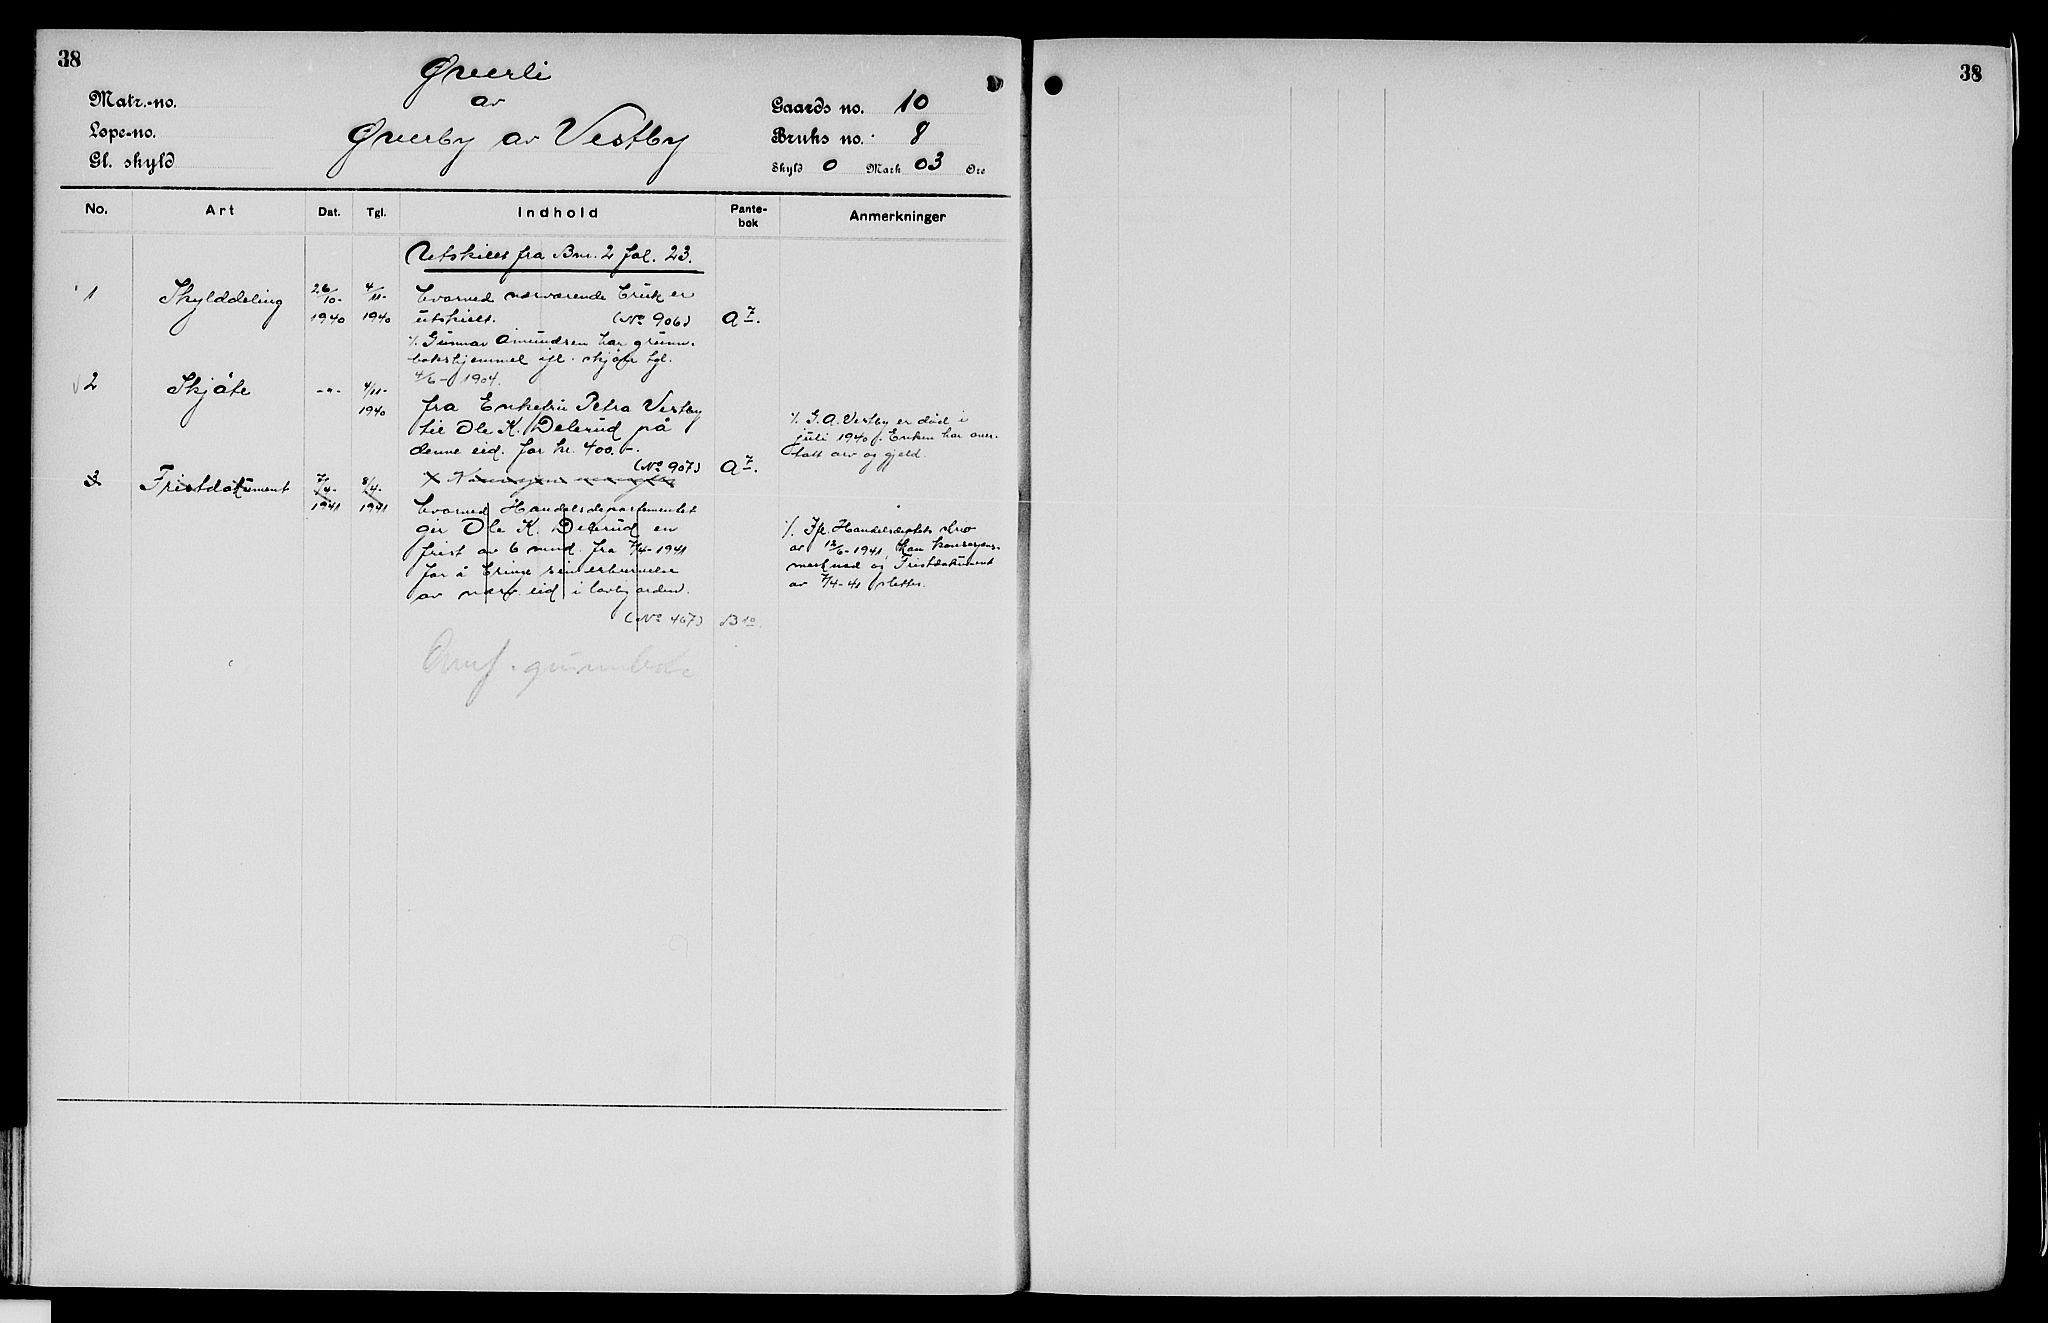 38
Øverli
av
Øverby av Vestby
Matr.-no.
Løpe-no.
Gl. skyld
Gaards no. 10
Bruks no. 8
Skyld 0 Mark 03 Øre
No. Art Dat. Tgl. Indhold Pante-bok Anmerkninger
Utskilt fra Bnr. 2 fol. 23.
1 Skylddeling 26/10- 1940 4/11- 1940 hvorved nærværende bruk er
utskilt. (No 906) A 7.
./. Gunnar Amundsen har grunn-
bokshjemmel ifl. skjøte tgl.
4/6-1904.
2 Skjøte -"- 4/11- 1940
fra Enkefru Petra Vestby
til Ole K. Delerud på
denne eid. for kr. 400.-.
(No 907) A 7.
./. G. A. Vestby er død i
juli 1940. Enken har over-
tatt arv og gjeld.
X Konsesjon mangler
3 Fristdokument 7/4- 1941 8/4- 1941
hvorved Handelsdepartementet
gir Ole K. Delerud en
frist av 6 mnd. fra 7/4-1941
for å bringe eindisbruvelse
av nærv. eid. i lovlig orden.
(No 467) B 10.
./. Ifl. Handelsdeptets skriv
av 12/6-1941, kan konsesjons-
merknad og Fristdokument
av 7/4-41 slettes.
Overf. grunnbok
38